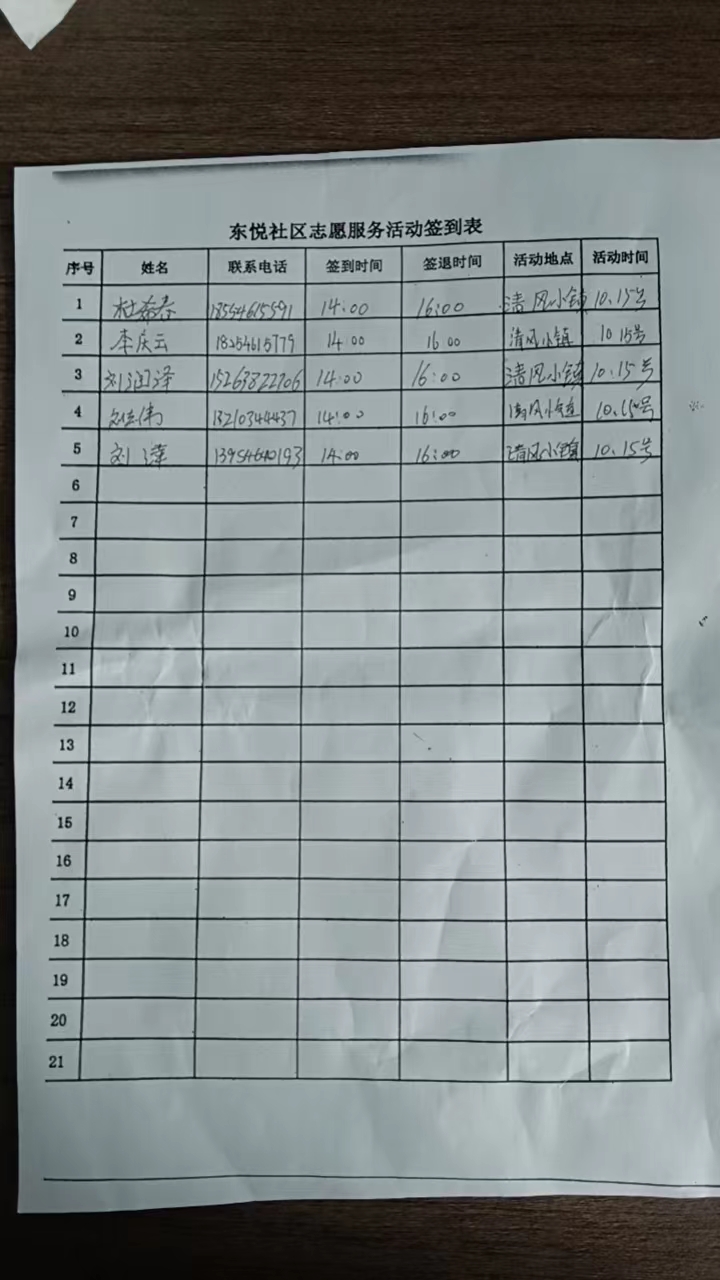 东悦社区志愿服务活动签到表
序号 姓名 联系电话 签到时间 签退时间 活动地点 活动时间
1 杜 18554615591 14:00 16:00 清风小镇 10.15号
2 李庆云 18254615779 14:00 16:00 清风小镇 10 15号
3 刘润泽 15263822706 14:00 16:00 清风小镇 10.15号
4 伟 18210344437 14:00 16:00 清风小镇 10.15号
5 刘萍 13954640193 14:00 16:00 清风小镇 10.15号
6
7
8
9
10
11
12
13
14
15
16
17
18
19
20
21